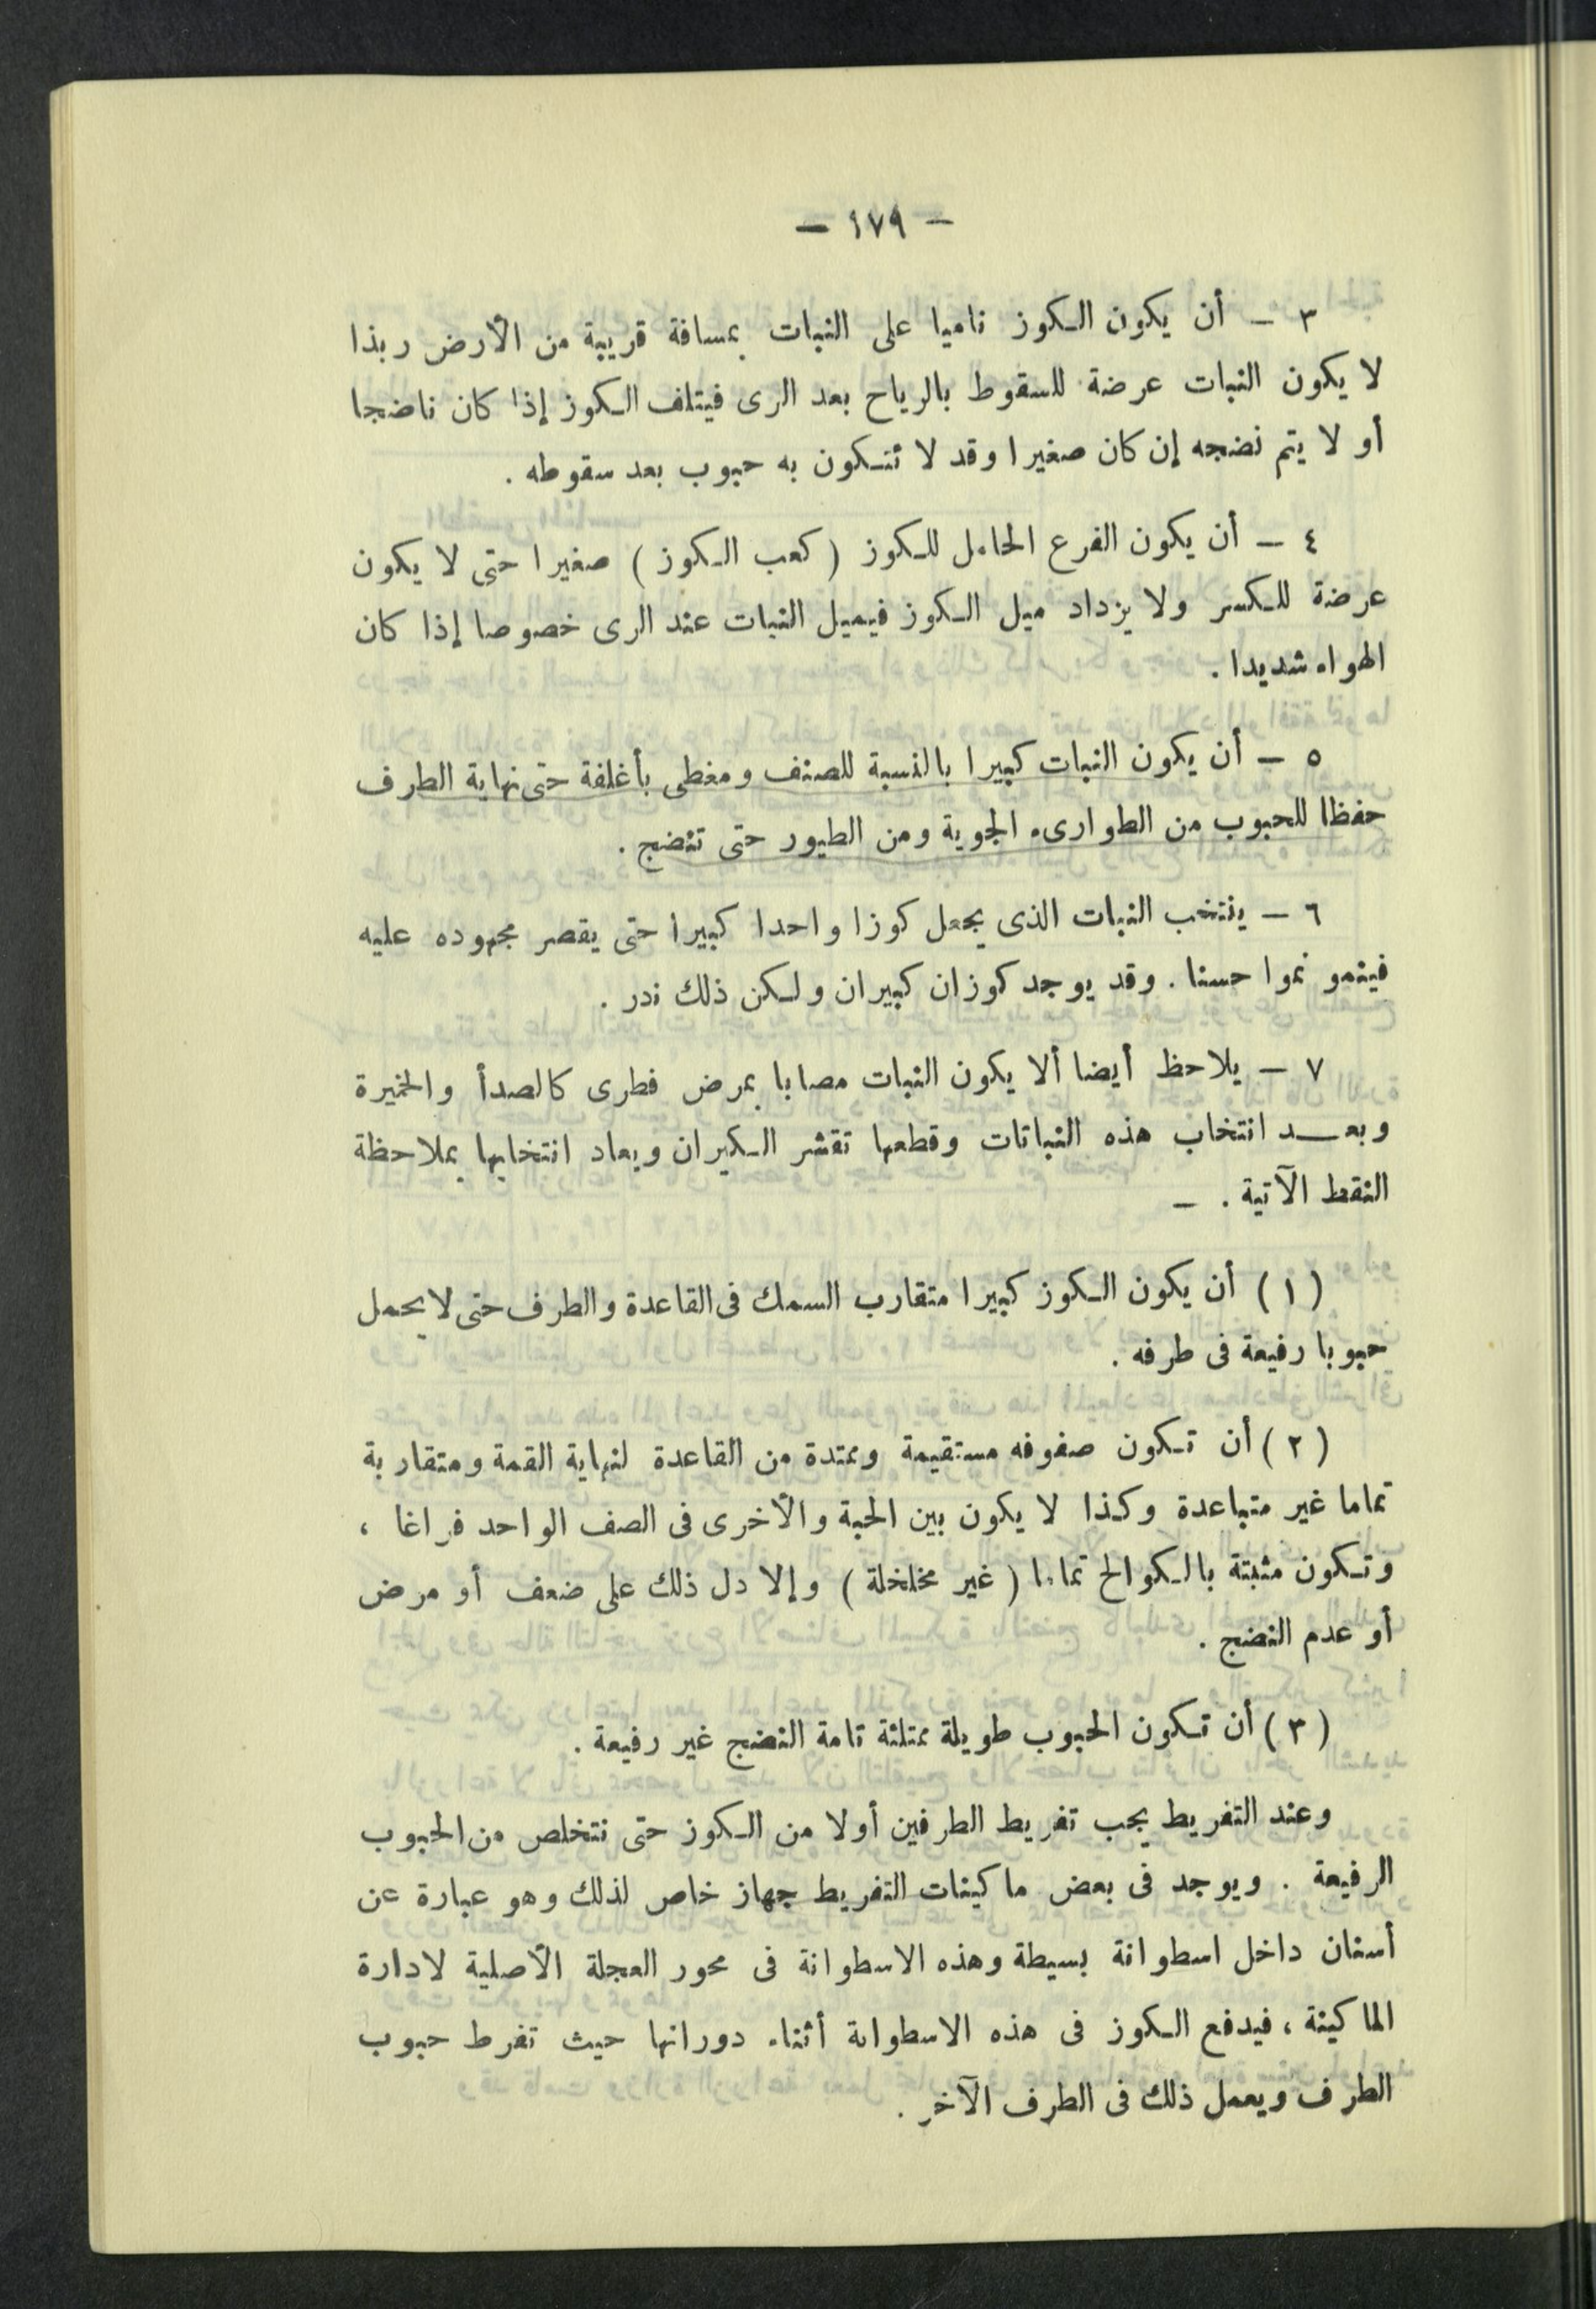 — ١٧٩ —
٣ — أن يكون الكوز ناميا على النبات بمسافة قريبة من الأرض ربذا
لا يكون النبات عرضة للسقوط بالرياح بعد الرى فيتلف الكوز إذا كان ناضجا
أو لا يتم نضجه إن كان صغيرا وقد لا تتكون به حبوب بعد سقوطه .
٤ — أن يكون الفرع الحامل للكوز ( كعب الكوز ) صغيرا حتى لا يكون
عرضة للكسر ولا يزداد ميل الكوز فيميل النبات عند الرى خصوصا إذا كان
الهواء شديدا .
٥ — أن يكون النبات كبيرا بالنسبة للصنف ومغطى بأغلفة حتى نهاية الطرف
حفظا للحبوب من الطوارىء الجوية ومن الطيور حتى تنضج .
٦ — ينتخب النبات الذى يجعل كوزا واحدا كبيرا حتى يقصر مجهوده عليه
فينمو نموا حسنا . وقد يوجد كوزان كبيران ولكن ذلك ندر .
٧ — يلاحظ أيضا ألا يكون النبات مصابا بمرض فطرى كالصدأ والخميرة
وبعــد انتخاب هذه النباتات وقطعها تقشر الكيران ويعاد انتخابها بملاحظة
النقط الآتية . —
( ١ ) أن يكون الكوز كبيرا متقارب السمك فى القاعدة والطرف حتى لا يحمل
حبوبا رفيعة فى طرفه .
( ٢ ) أن تكون صفوفه مستقيمة وممتدة من القاعدة لنهاية القمة ومتقاربة
تماما غير متباعدة وكذا لا يكون بين الحبة والأخرى فى الصف الواحد فراغا ،
وتكون مثبتة بالكوالح تماما ( غير مخلخلة ) وإلا دل ذلك على ضعف أو مرض
أو عدم النضج .
( ٣ ) أن تكون الحبوب طويلة ممتلئة تامة النضج غير رفيعة .
وعند التفريط يجب تفريط الطرفين أولا من الكوز حتى نتخلص من الحبوب
الرفيعة . ويوجد فى بعض ماكينات التفريط جهاز خاص لذلك وهو عبارة عن
أسنان داخل اسطوانة بسيطة وهذه الاسطوانة فى محور العجلة الأصلية لادارة
الماكينة ، فيدفع الكوز فى هذه الاسطوانة أثناء دورانها حيث تفرط حبوب
الطرف ويعمل ذلك فى الطرف الآخر .